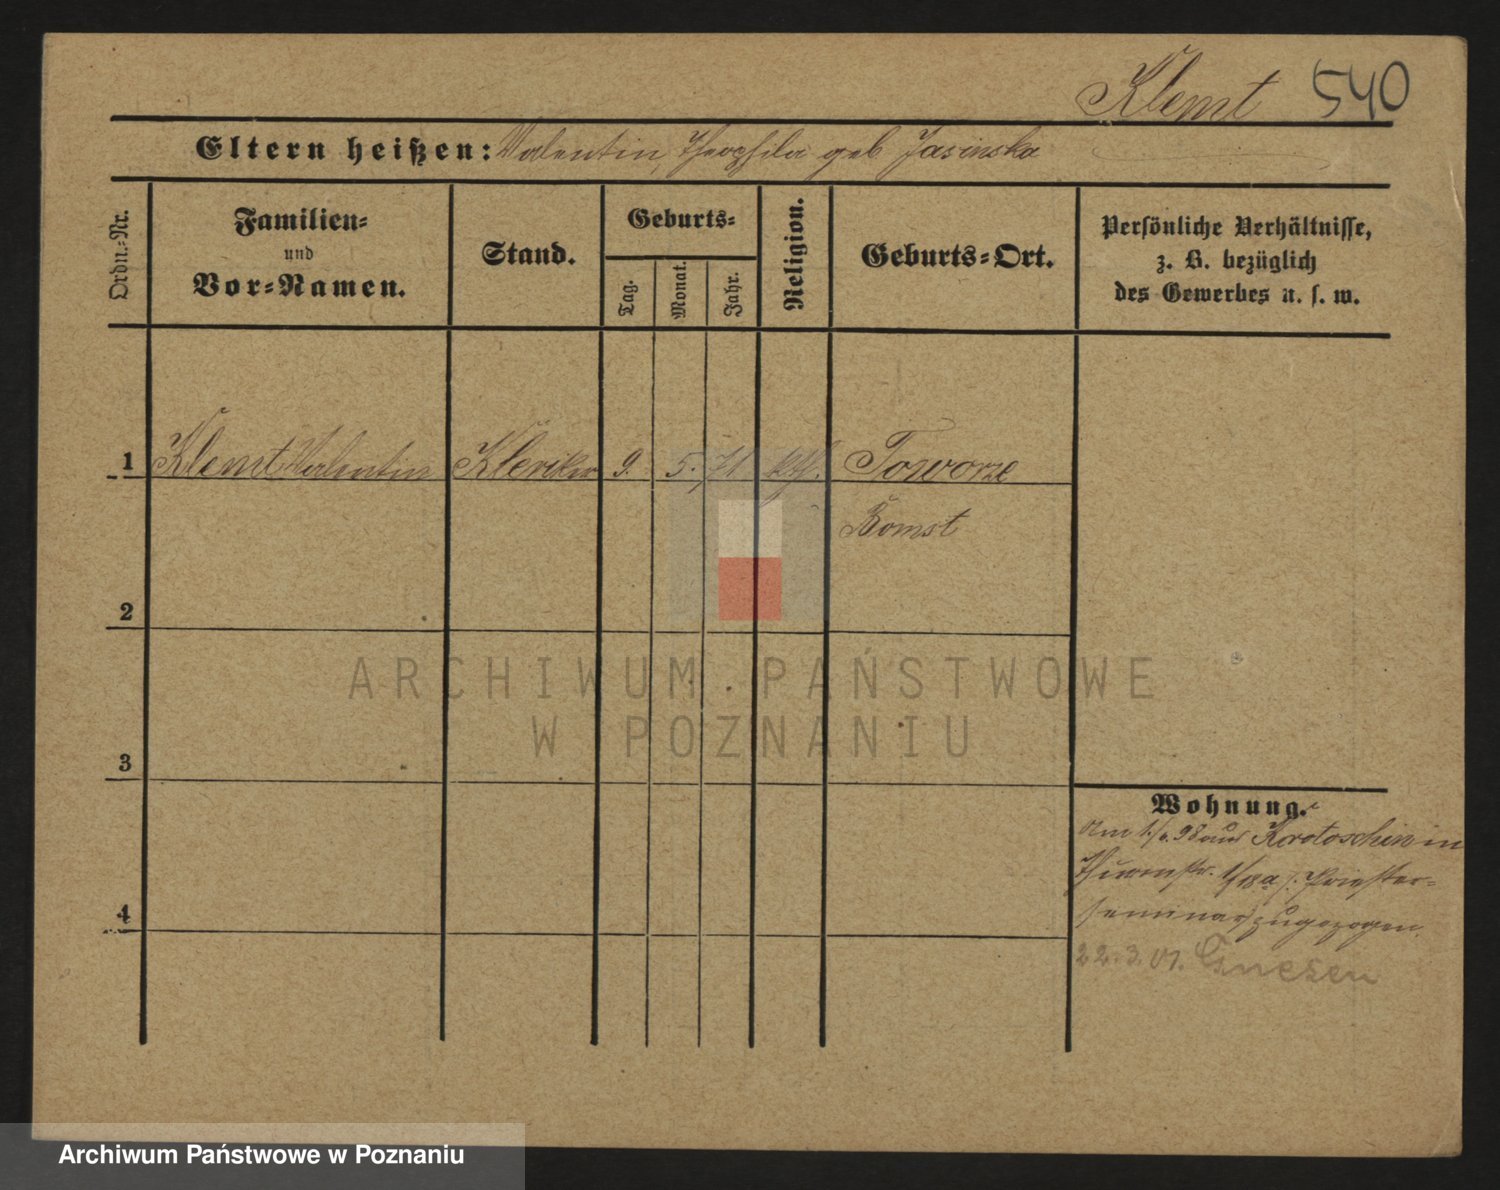 Klemt 540
Eltern heißen: Valentin, Theophila geb Jasinska
Ordn.-Nr.
Familien-
und
Vor-Namen.
Stand.
Geburts-
Tag.
Monat.
Jahr.
Religion.
Geburts-Ort.
Persönliche Verhältnisse,
z. B. bezüglich
des Gewerbes u. s. w.
1 Klemt Valentin Kleriker 9. 5. 71 kth. Toworze
Bomst
2
3
4
Wohnung.
Am 98 aus Krotoschin in
Thurmstr. Priester-
seminar) zugezogen.
22.3.01. Gnesen
ARCHIWUM PAŃSTWOWE
W POZNANIU
Archiwum Państwowe w Poznaniu